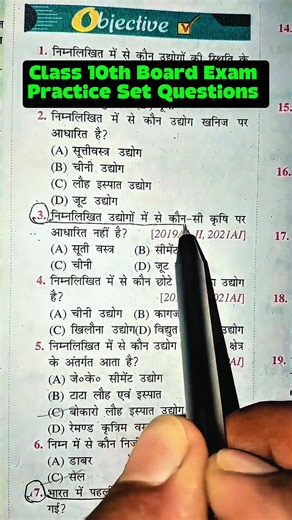 Objective
14.
1. निम्नलिखित में से कौन उद्योगों की स्थिति के
Class 10th Board Exam
Practice Set Questions
2. निम्नलिखित में से कौन उद्योग खनिज पर
आधारित है?
(A) सूत्तीवस्त्र उद्योग
(B) चीनी उद्योग
(C) लौह इस्पात उद्योग
(D) जूट उद्योग
3. निम्नलिखित उद्योगों में से कौन-सी कृषि पर
आधारित नहीं है? [2019 II, 2021AI]
17.
(A) सूती वस्त्र (B) सीमेंट
(C) चीनी (D) जूट
4. निम्नलिखित में से कौन छोटे उद्योग
है?
18.
(A) चीनी उद्योग (B) कागज
(C) खिलौना उद्योग(D) विद्युत उद्योग
5. निम्नलिखित में से कौन उद्योग क्षेत्र
के अंतर्गत आता है?
19.
(A) जे०के० सीमेंट उद्योग
(B) टाटा लौह एवं इस्पात
(C) बोकारो लौह इस्पात उद्योग
(D) रेमण्ड कृत्रिम
6. निम्न में से कौन
(A) डाबर
(C) सेल
7. भारत में
गई?